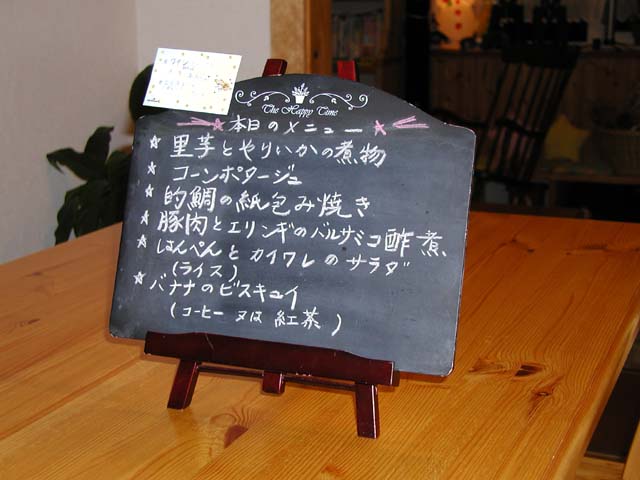 The Happy Time
★本日のメニュー★
★里芋とやりいかの煮物
★コーンポタージュ
★的鯛の紙包み焼き
★豚肉とエリンギのバルサミコ酢煮
★はんぺんとカイワレのサラダ
(ライス)
★バナナのビスキュイ
(コーヒー又は紅茶)